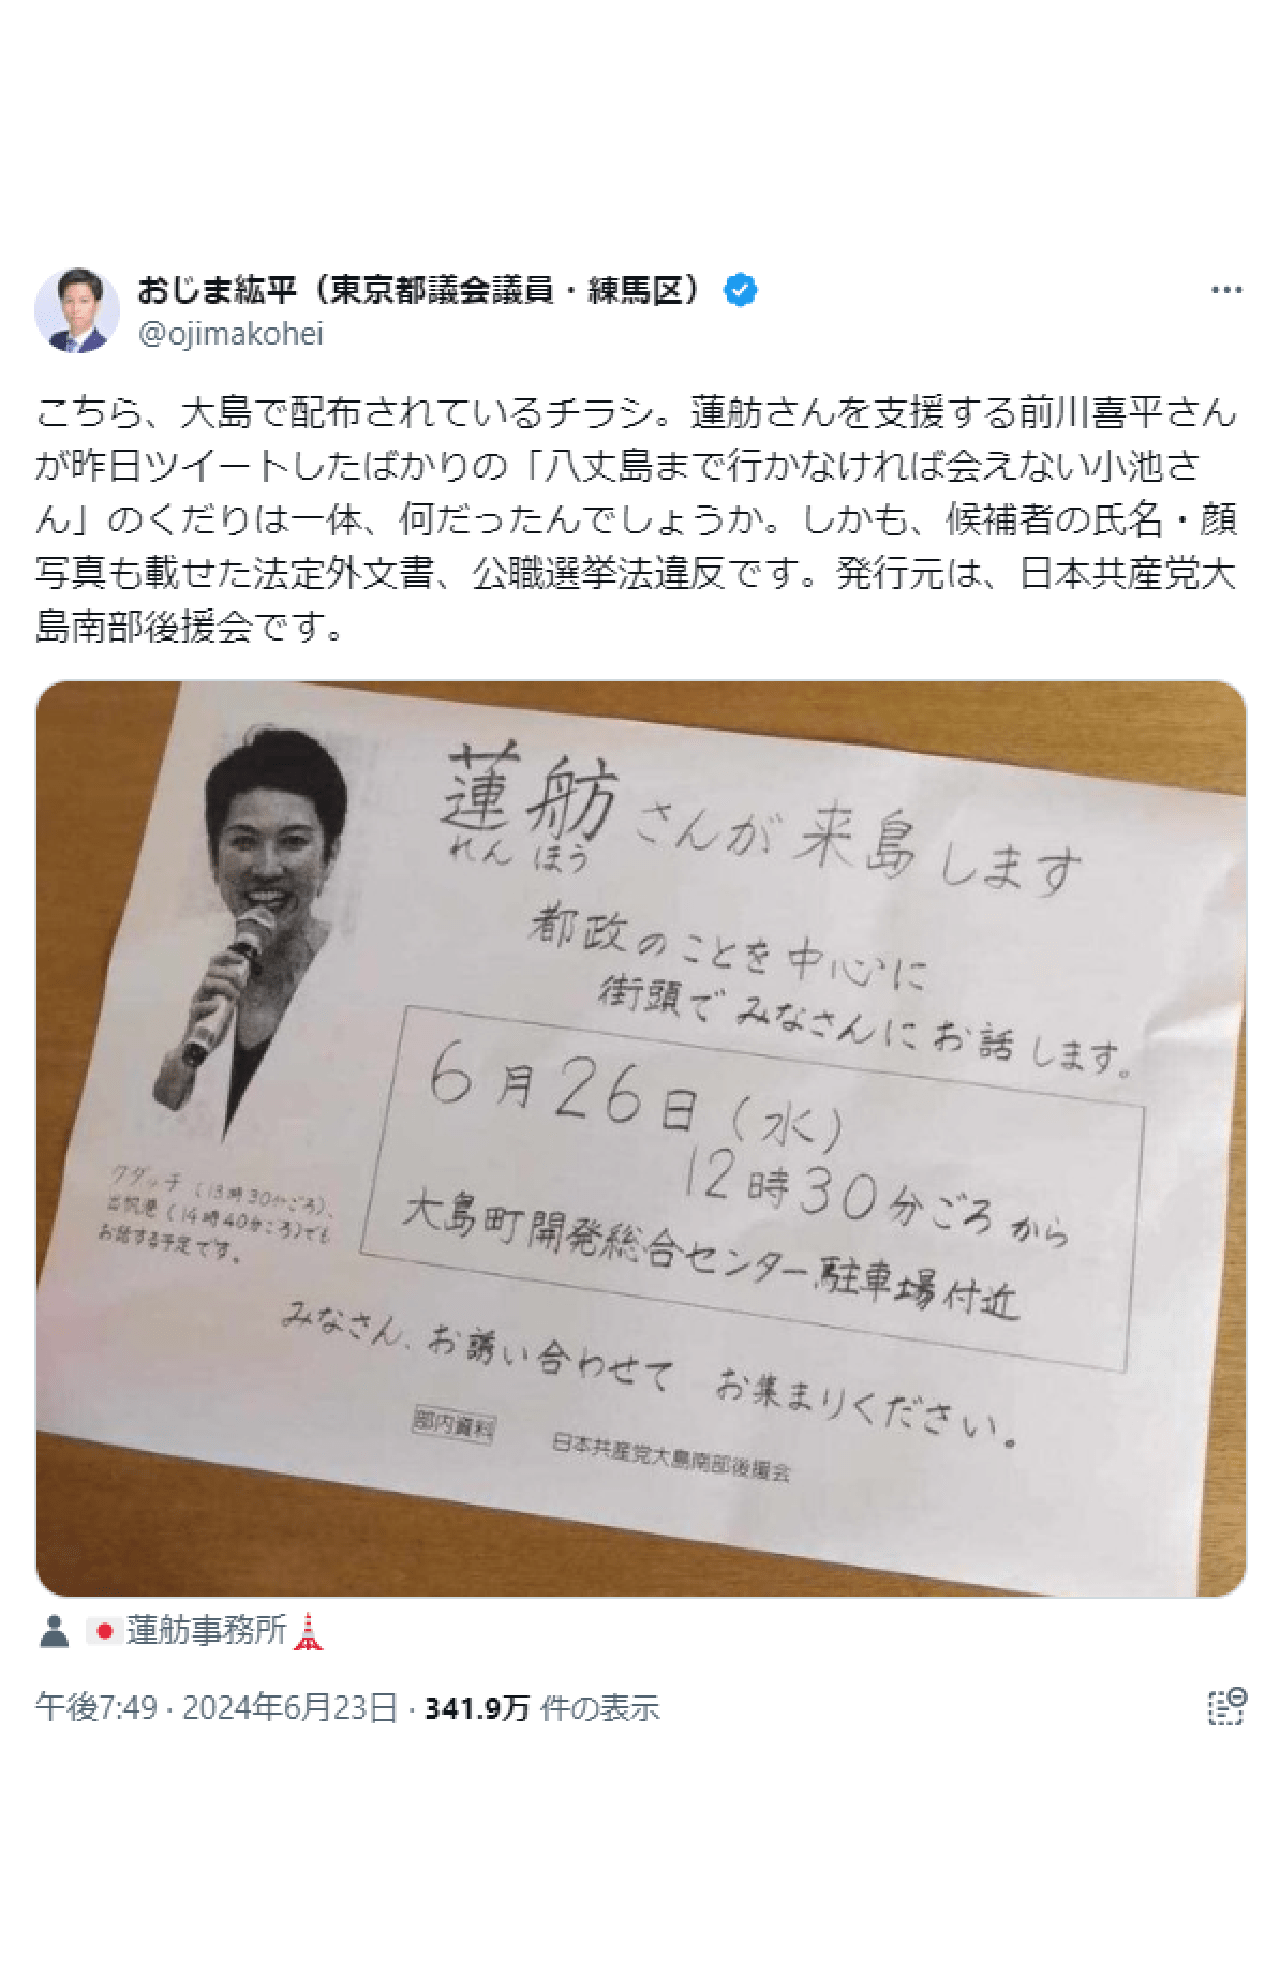 おじま紘平（東京都議会議員・練馬区）
@ojimakohei
こちら、大島で配布されているチラシ。蓮舫さんを支援する前川喜平さん
が昨日ツイートしたばかりの「八丈島まで行かなければ会えない小池さ
ん」のくだりは一体、何だったんでしょうか。しかも、候補者の氏名・顔
写真も載せた法定外文書、公職選挙法違反です。発行元は、日本共産党大
島南部後援会です。
蓮舫さんが来島します
れんほう
都政のことを中心に
街頭でみなさんにお話します。
6月26日（水）
12時30分ごろから
大島町開発総合センター駐車場付近
クダッチ（13時30分ごろ）、
波浮港（14時40分ころ）でも
お話する予定です。
みなさん、お誘い合わせて お集まりください。
部内資料 日本共産党大島南部後援会
蓮舫事務所
午後7:49 · 2024年6月23日 · 341.9万 件の表示